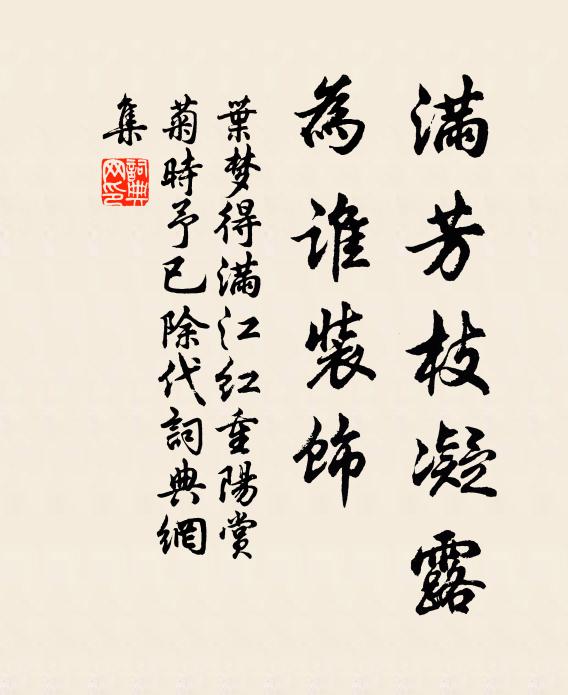 滿芳枝凝露
為誰裝飾
葉梦得滿江红重陽赏
菊時予已除代詞典網
集
詞典
网印